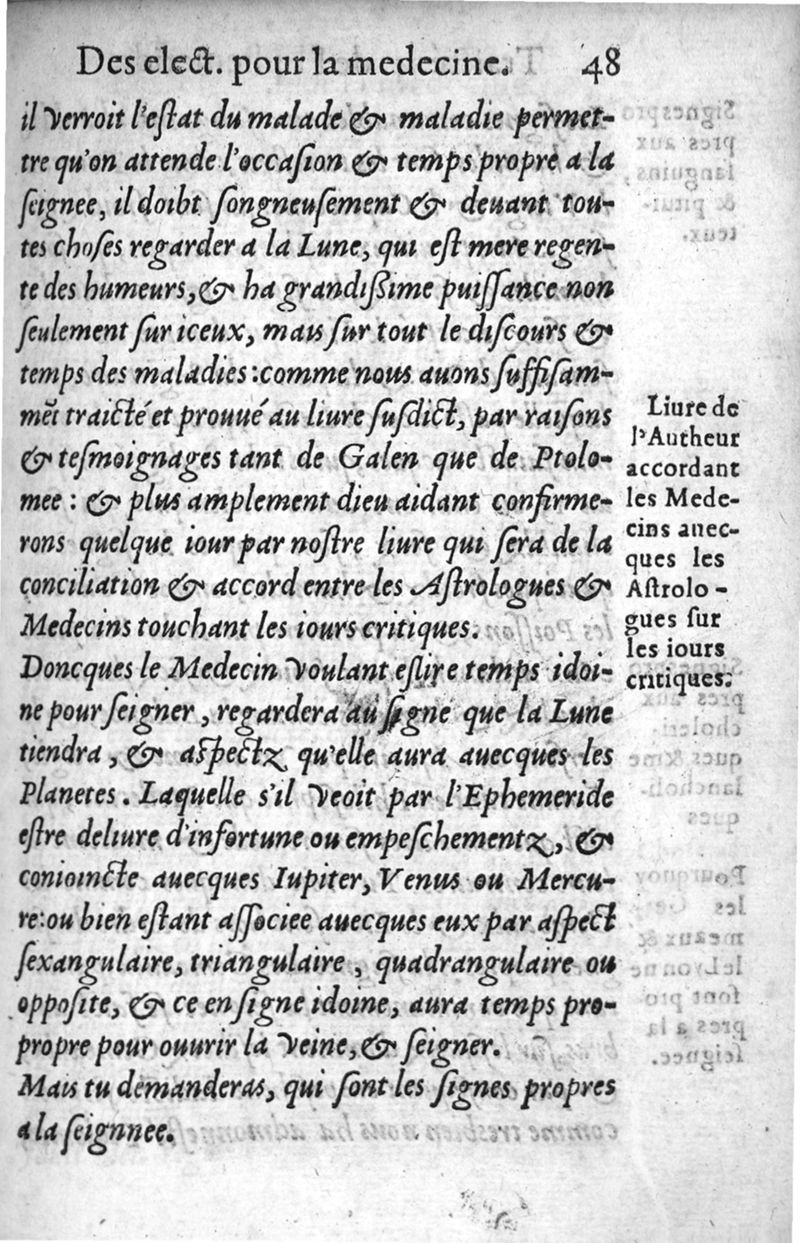 Des elect. pour la medecine. 48
il verroit l'eſtat du malade & maladie permet-
tre qu'on attende l'occaſion & temps propre a la
ſeignee, il doibt ſongneuſement & deuant tou-
tes choſes regarder a la Lune, qui eſt mere regen-
te des humeurs, & ha grandiſſime puiſſance non
ſeulement ſur iceux, mais ſur tout le diſcours &
temps des maladies : comme nous auons ſuffiſam-
mẽt traicté et prouué au liure ſuſdict, par raiſons
& teſmoignages tant de Galen que de Ptolo-
mee : & plus amplement dieu aidant confirme-
rons quelque iour par noſtre liure qui ſera de la
conciliation & accord entre les Aſtrologues &
Medecins touchant les iours critiques.
Doncques le Medecin voulant eſlire temps idoi-
ne pour ſeigner, regardera au ſigne que la Lune
tiendra, & aſpectz qu'elle aura auecques les
Planetes. Laquelle s'il veoit par l'Ephemeride
eſtre deliure d'infortune ou empeſchementz, &
conioincte auecques Iupiter, Venus ou Mercu-
re: ou bien eſtant aſſociee auecques eux par aſpect
ſexangulaire, triangulaire, quadrangulaire ou
oppoſite, & ce en ſigne idoine, aura temps pro-
propre pour ouurir la veine, & ſeigner.
Mais tu demanderas, qui ſont les ſignes propres
a la ſeignnee.
Liure de
l'Autheur
accordant
les Mede-
cins auec-
ques les
Aſtrolo-
gues ſur
les iours
critiques.